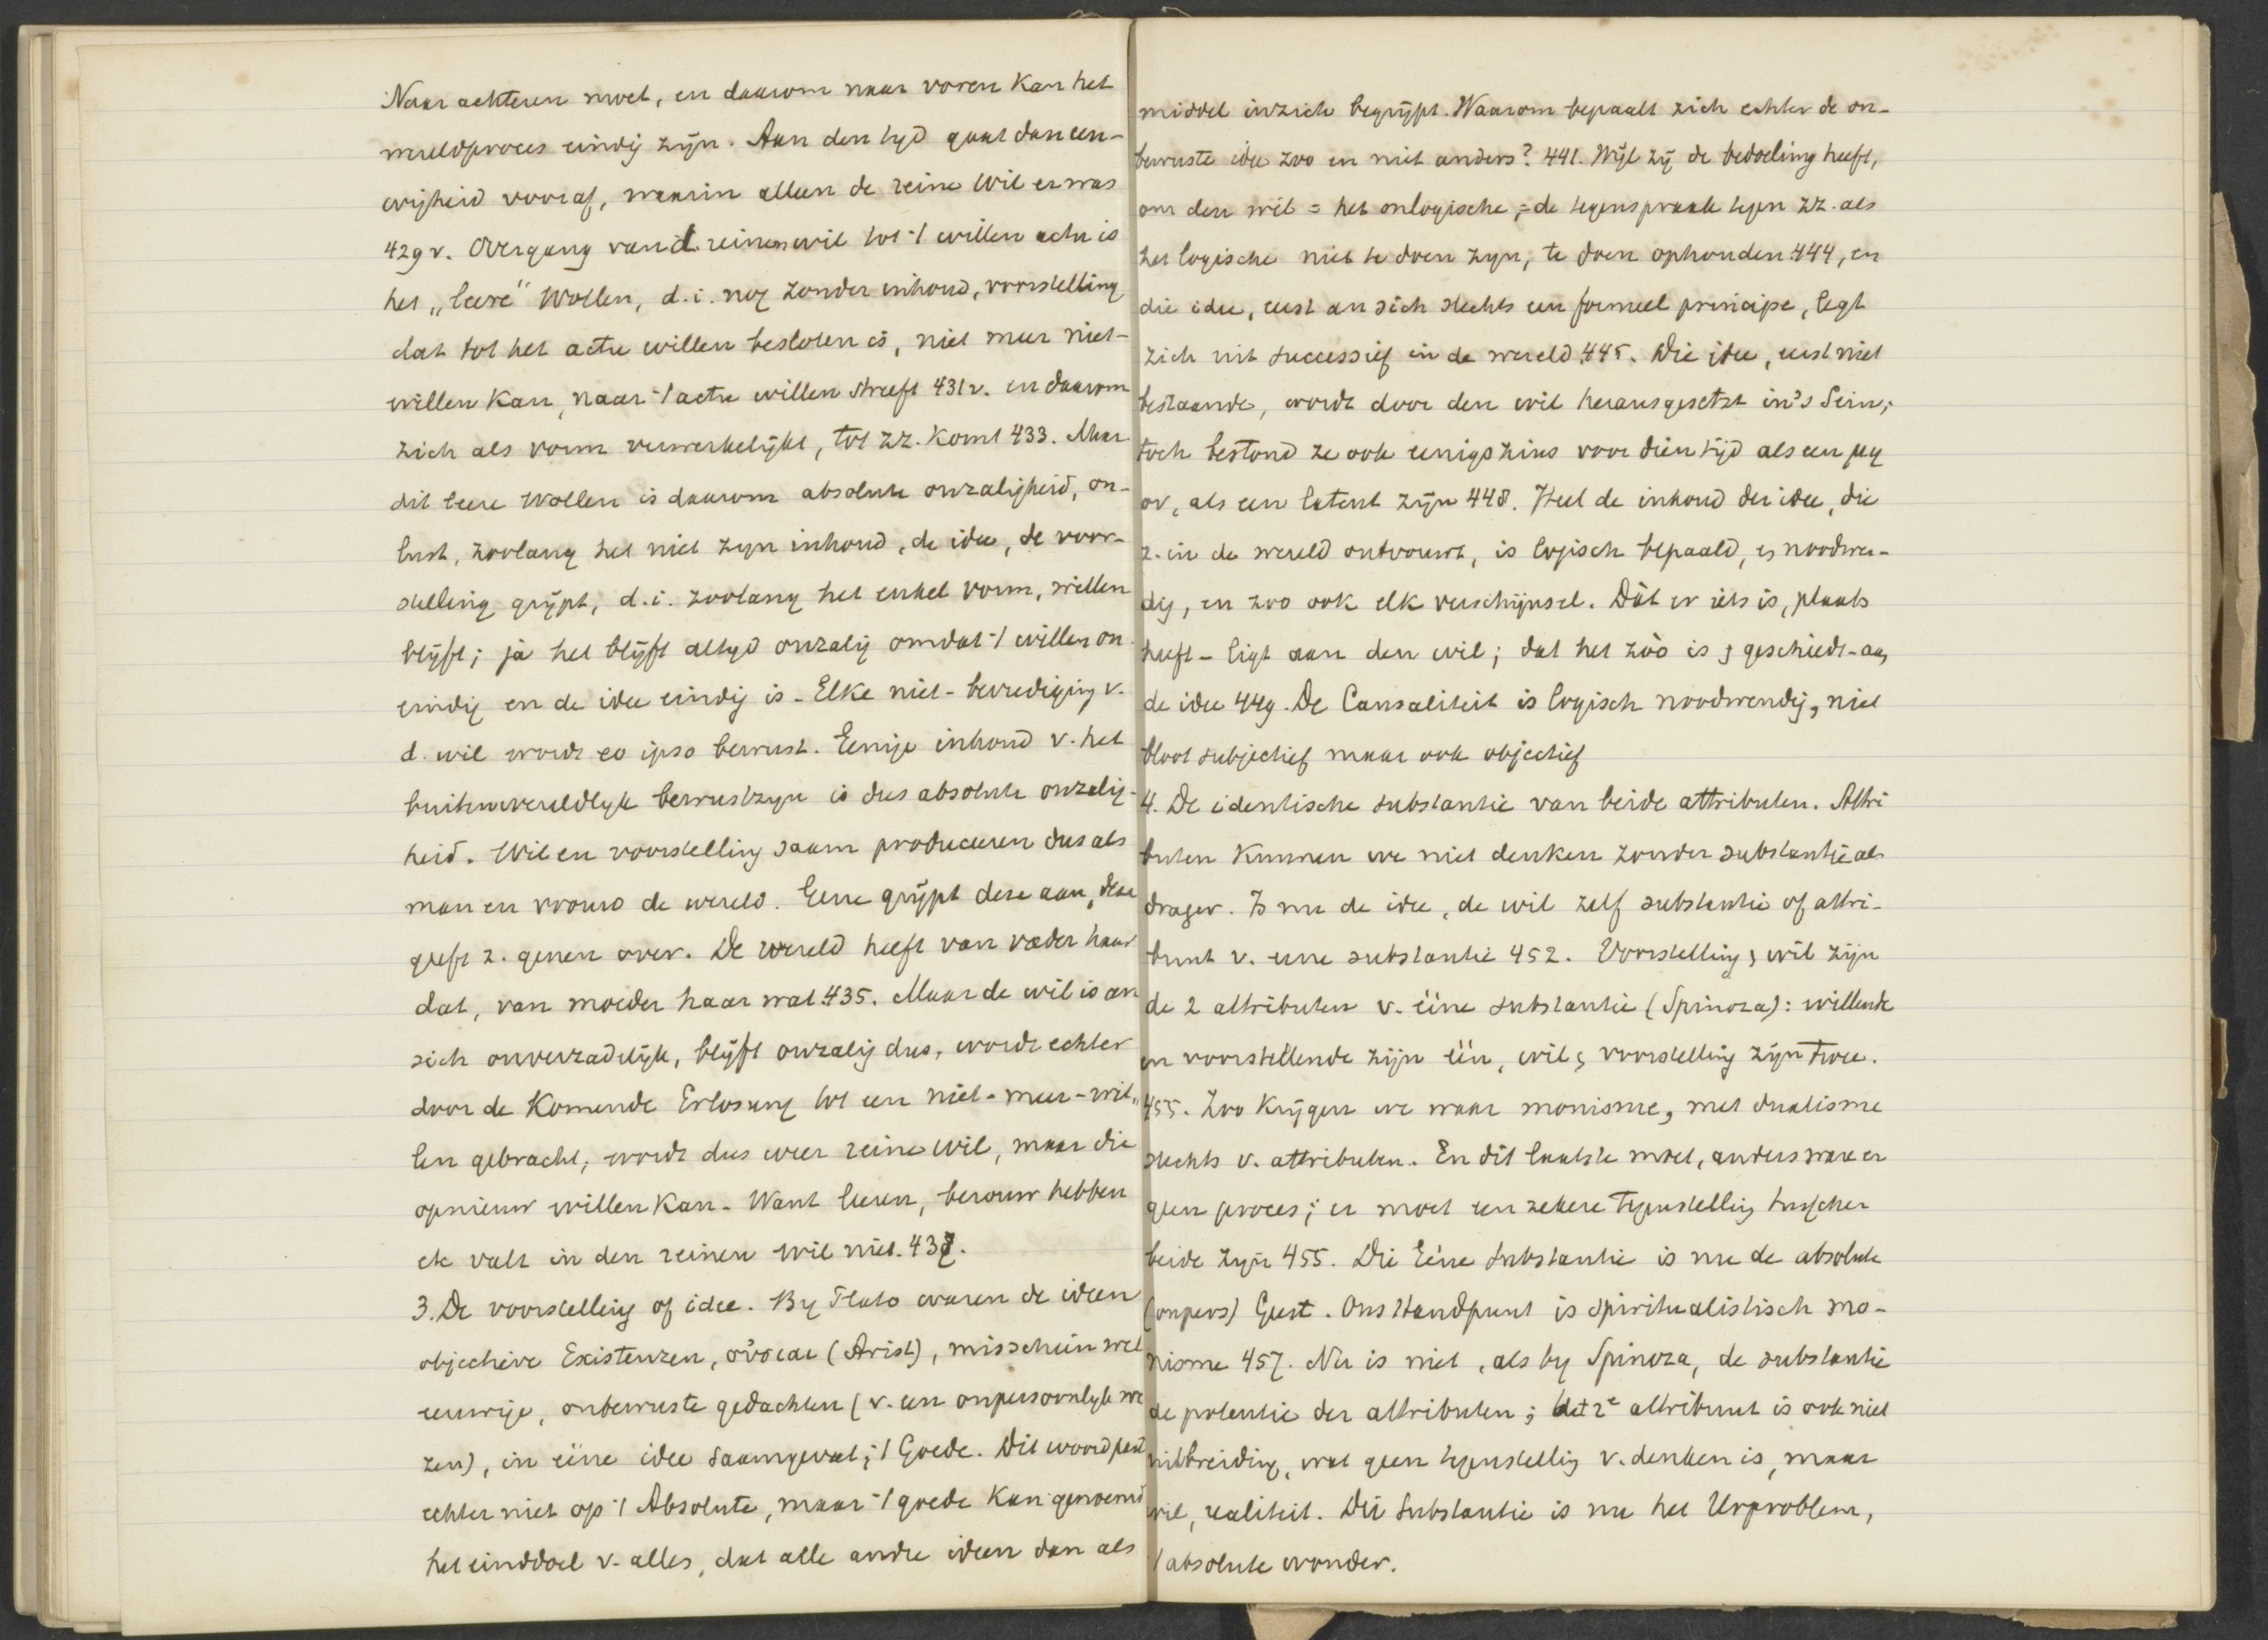 Naar achteren moet, en daarom naar voren kan het
wereldproces eindig zijn. Aan den tyd gaat dan eeu-
wigheid vooraf, waarin alleen de reine Wil er was
429 v. Overgang van d. reinen wil tot 't willen actu is
het „leere" Wollen, d.i. nog zonder inhoud, voorstelling
dat tot het actu willen besloten is, niet meer niet-
willen kan, naar 't actu willen streeft 431 v. en daarom
zich als vorm verwerkelijkt, tot zz. komt 433. Maar
dit leere Wollen is daarom absolute onzaligheid, on-
lust, zoolang het niet zyn inhoud, de idee, de voor-
stelling grijpt, d.i. zoolang het enkel vorm, willen
blijft; ja het blijft altyd onzalig omdat 't willen on-
eindig en de idee eindig is. Elke niet-bevrediging v.
d. wil wordt eo ipso bewust. Eenige inhoud v. het
buitenwereldlyk bewustzyn is dus absolute onzalig-
heid. Wil en voorstelling saam produceeren dus als
man en vrouw de wereld. Gene grijpt deze aan, deze
geeft z. genen over. De wereld heeft van vader haar
dat, van moeder haar wat 435. Maar de wil is an
sich onverzadelijk, blijft onzalig dus, wordt echter
door de komende Erlosung tot een niet-meer-wil„
len gebracht, wordt dus weer reine wil, maar die
opnieuw willen kan. Want leeren, berouw hebben
etc valt in den reinen wil niet. 437.
3. De voorstelling of idee. By Plato waren de ideen
objectieve Existenzen, οὐσιαι (Arist), misschien wel
eeuwige, onbewuste gedachten (v. een onpersoonlyk we
zen), in eéne idee saamgevat; 't Goede. Dit woord past
echter niet op 't Absolute, maar 't goede kan genoemd
het einddoel v. alles, dat alle andre ideen dan als
middel inzich begrijpt. Waarom bepaalt zich echter de on-
bewuste idee zoo en niet anders? 441. Wijl zij de bedoeling heeft,
om den wil = het onlogische, = de tegenspraak tegen zz. als
het logische niet te doen zyn, te doen ophouden 444, en
die idee, eerst an sich slechts een formeel principe, legt
zich uit successief in de wereld 445. Die idee, eerst niet
bestaande, wordt door den wil herausgesetzt in's Sein;
toch bestond ze ook eenigszins voor dien tijd als een μη
ον, als een latent zijn 448. Heel de inhoud der idee, die
z. in de wereld ontvouwt, is logisch bepaald, is noodwen-
dig, en zoo ook elk verschijnsel. Dàt er iets is, plaats
heeft - ligt aan den wil; dat het zòò is & geschiedt - aan
de idee 449. De Causaliteit is logisch noodwendig, niet
bloot subjectief maar ook objectief
4. De identische substantie van beide attributen. Attri
buten kunnen we niet denken zonder substantie als
drager. Is nu de idee, de wil zelf substantie of attri-
buut v. eene substantie 452. Voorstelling & wil zijn
de 2 attributen v. ééne substantie (Spinoza): willende
en voorstellende zijn één, wil & voorstelling zijn twee.
455. Zoo krijgen we waar monisme, met dualisme
slechts v. attributen. En dit laatste moet, anders ware er
geen proces; er moet een zekere tegenstelling tusschen
beide zyn 455. Die Eéne substantie is nu de absolute
(onpers) Geest. Ons standpunt is spiritualistisch mo-
nisme 457. Nu is niet, als by Spinoza, de substantie
de potentie der attributen; het 2e attribuut is ook niet
uitbreiding, wat geen tegenstelling v. denken is, maar
wil, realiteit. Die substantie is nu het Urproblem,
't absolute wonder.